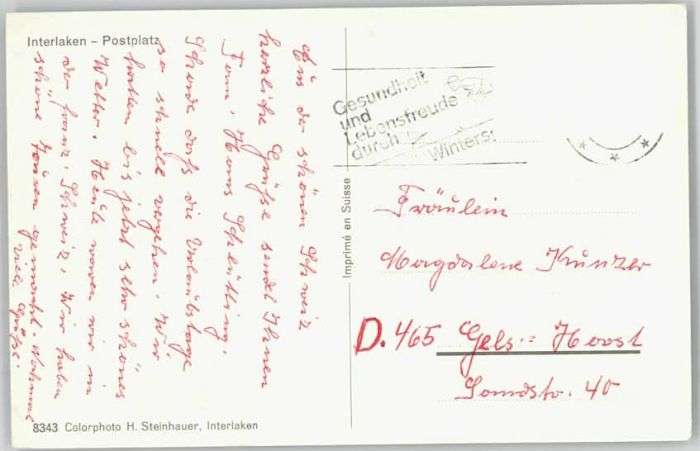 Interlaken – Postplatz
Aus der schönen Schweiz
herzliche Grüße sendet Ihnen
Fam. Hans Schilling.
Schade daß die Urlaubstage
so schnell vergehen. Wir
hatten bis jetzt sehr schönes
Wetter. Heute waren wir in
der franz. Schweiz. Wir haben
schöne Touren gemacht. Nochmal
viele Grüße.
8343 Colorphoto H. Steinhauer, Interlaken
Imprimé en Suisse
Gesundheit
und
Lebensfreude
durch
Winters
Fräulein
Magdalene Künzer
D. 465 Gels.= Horst
Sandstr. 40